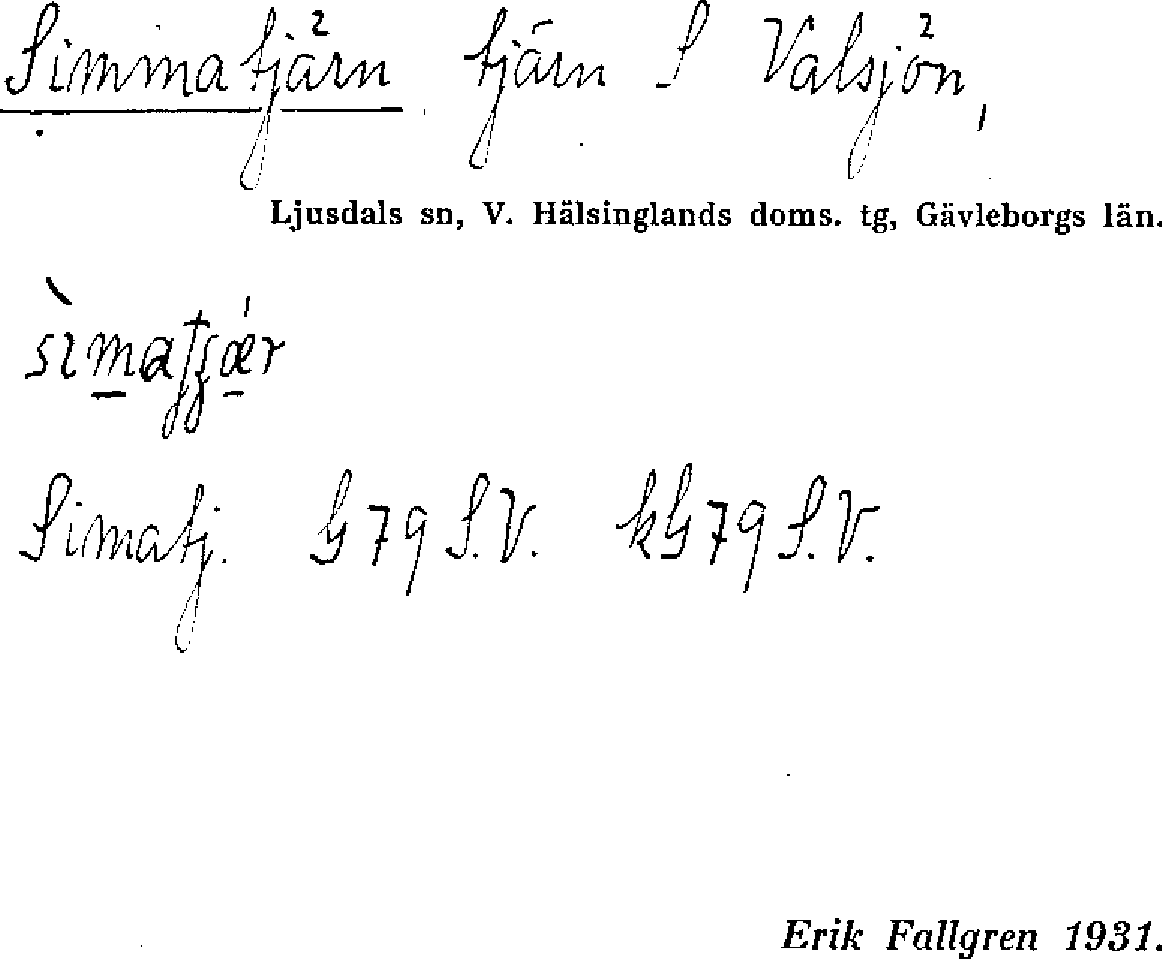 Simmatjärn tjärn S Valsjön,
Ljusdals sn, V. Hälsinglands doms. tg, Gävleborgs län.
Simatj. G 79 S.V. kG 79 S.V.
Erik Fallgren 1931.